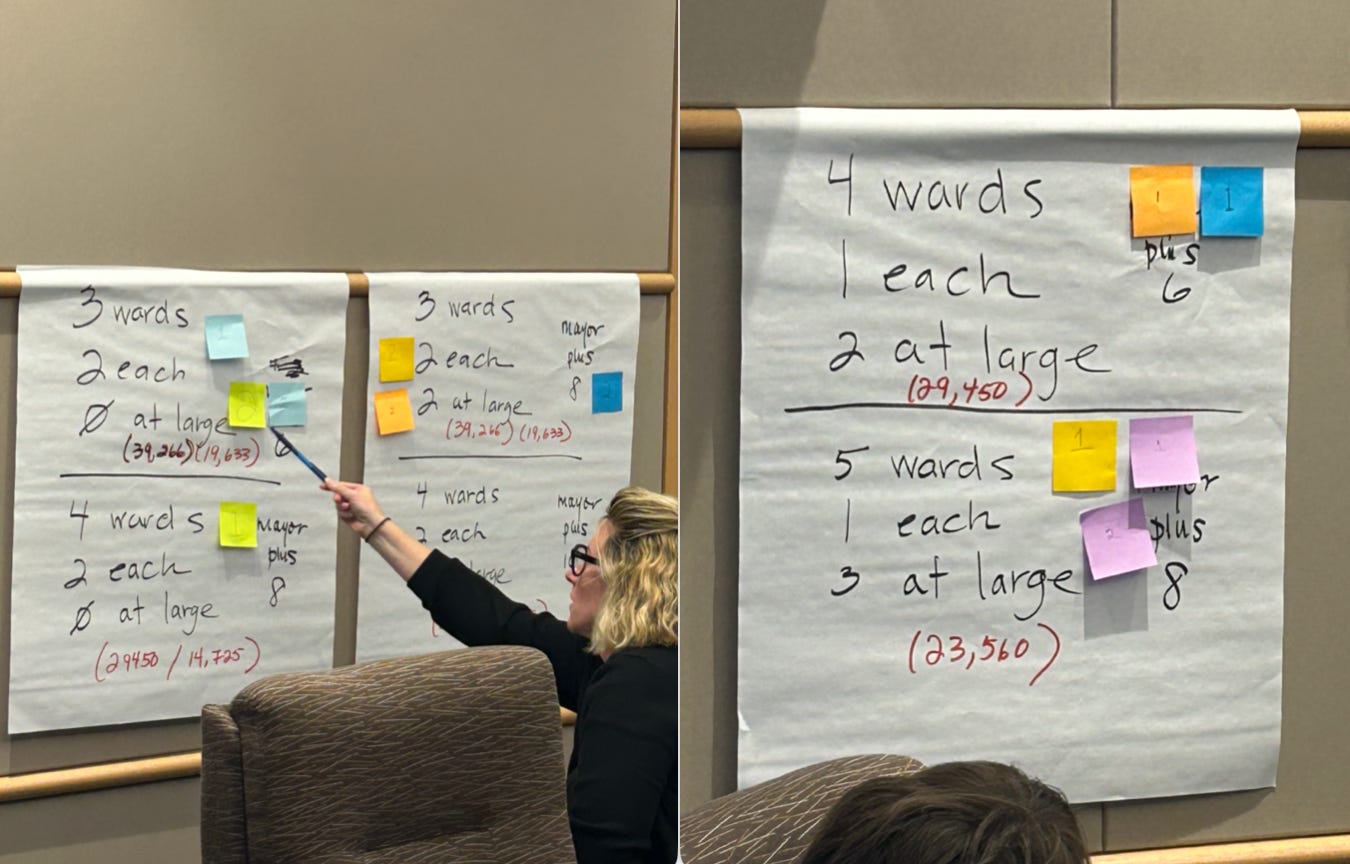 3 wards
1
2 each
2
Ø at large
(39,266) (19,633)
6
4 wards
1
mayor
plus
8
2 each
Ø at large
(29450 / 14,725)
3 wards
mayor
plus
8
2 each
2 at large
(39,266) (19,633)
4 wards
mayor
plus
2 each
4 wards
1
1
plus
6
1 each
2 at large
(29,450)
5 wards
1
1
1 each
2
plus
8
3 at large
(23,560)